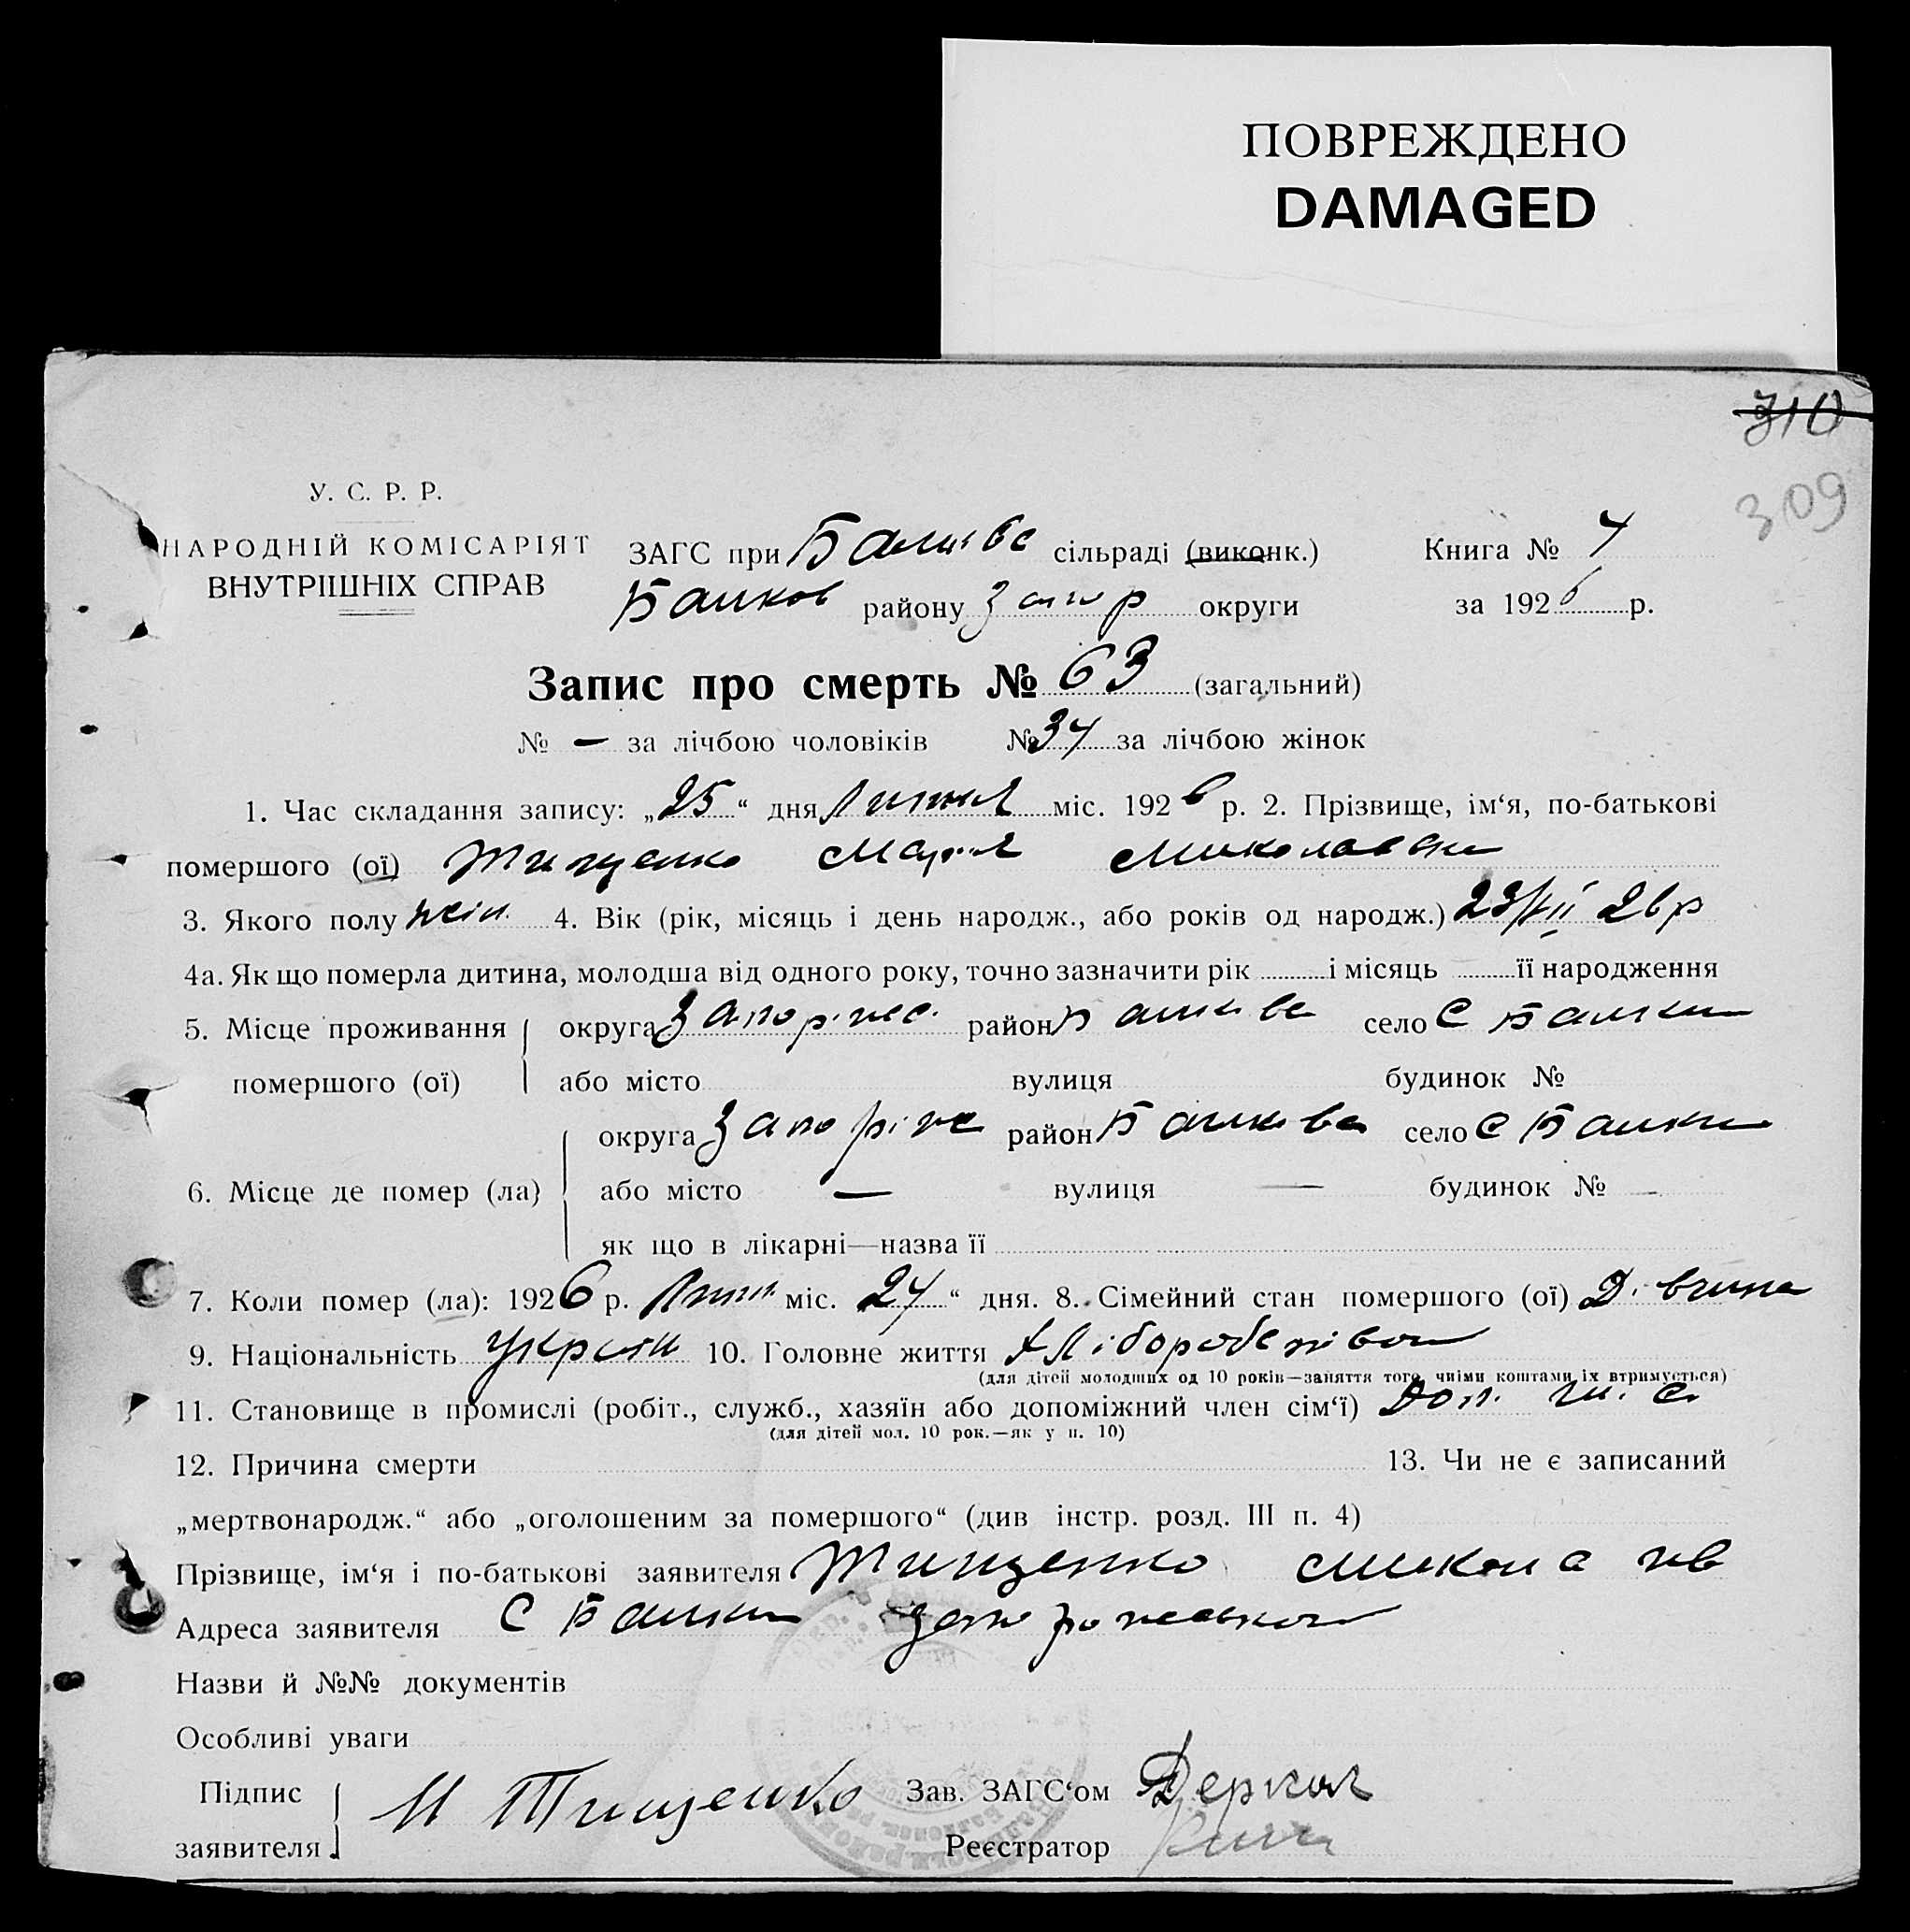 ПОВРЕЖДЕНО
DAMAGED
310
309
У. С. Р. Р.
НАРОДНІЙ КОМІСАРІЯТ
ВНУТРІШНІХ СПРАВ
ЗАГС при сільраді (виконк.) Книга № 4
Балков району Запор округи за 1926 р.
Запис про смерть № 63 (загальний)
№ — за лічбою чоловіків № 34 за лічбою жінок
1. Час складання запису: „25“ дня Липня міс. 1926 р. 2. Прізвище, ім‘я, по-батькові
помершого (ої) Тищенко Марія Миколаевна
3. Якого полу жін. 4. Вік (рік, місяць і день народж., або років од народж.) 23/VII 26 р
4а. Як що померла дитина, молодша від одного року, точно зазначити рік і місяць її народження
5. Місце проживання округа Запоріжс. район Балківс село С Балки
помершого (ої) або місто вулиця будинок №
округа Запоріже район Балківс село С Балки
6. Місце де помер (ла) або місто — вулиця — будинок № —
як що в лікарні—назва її
7. Коли помер (ла): 1926 р. Липн. міс. 24“ дня. 8. Сімейний стан помершого (ої) Дівчина
9. Національність Україн 10. Головне життя Хліборобство
(для дітей молодших од 10 років—заняття того, чиїми коштами їх втримується)
11. Становище в промислі (робіт., служб., хазяїн або допоміжний член сім‘ї) Доп. ч. с.
(для дітей мол. 10 рок.—як у п. 10)
12. Причина смерти 13. Чи не є записаний
„мертвонародж.“ або „оголошеним за помершого“ (див інстр. розд. III п. 4)
Прізвище, ім‘я і по-батькові заявителя Тищенко Микола Ив
Адреса заявителя С Балки Запорожської
Назви й №№ документів
Особливі уваги
Підпис М Тищенко Зав. ЗАГС‘ом Деркач
заявителя Реєстратор